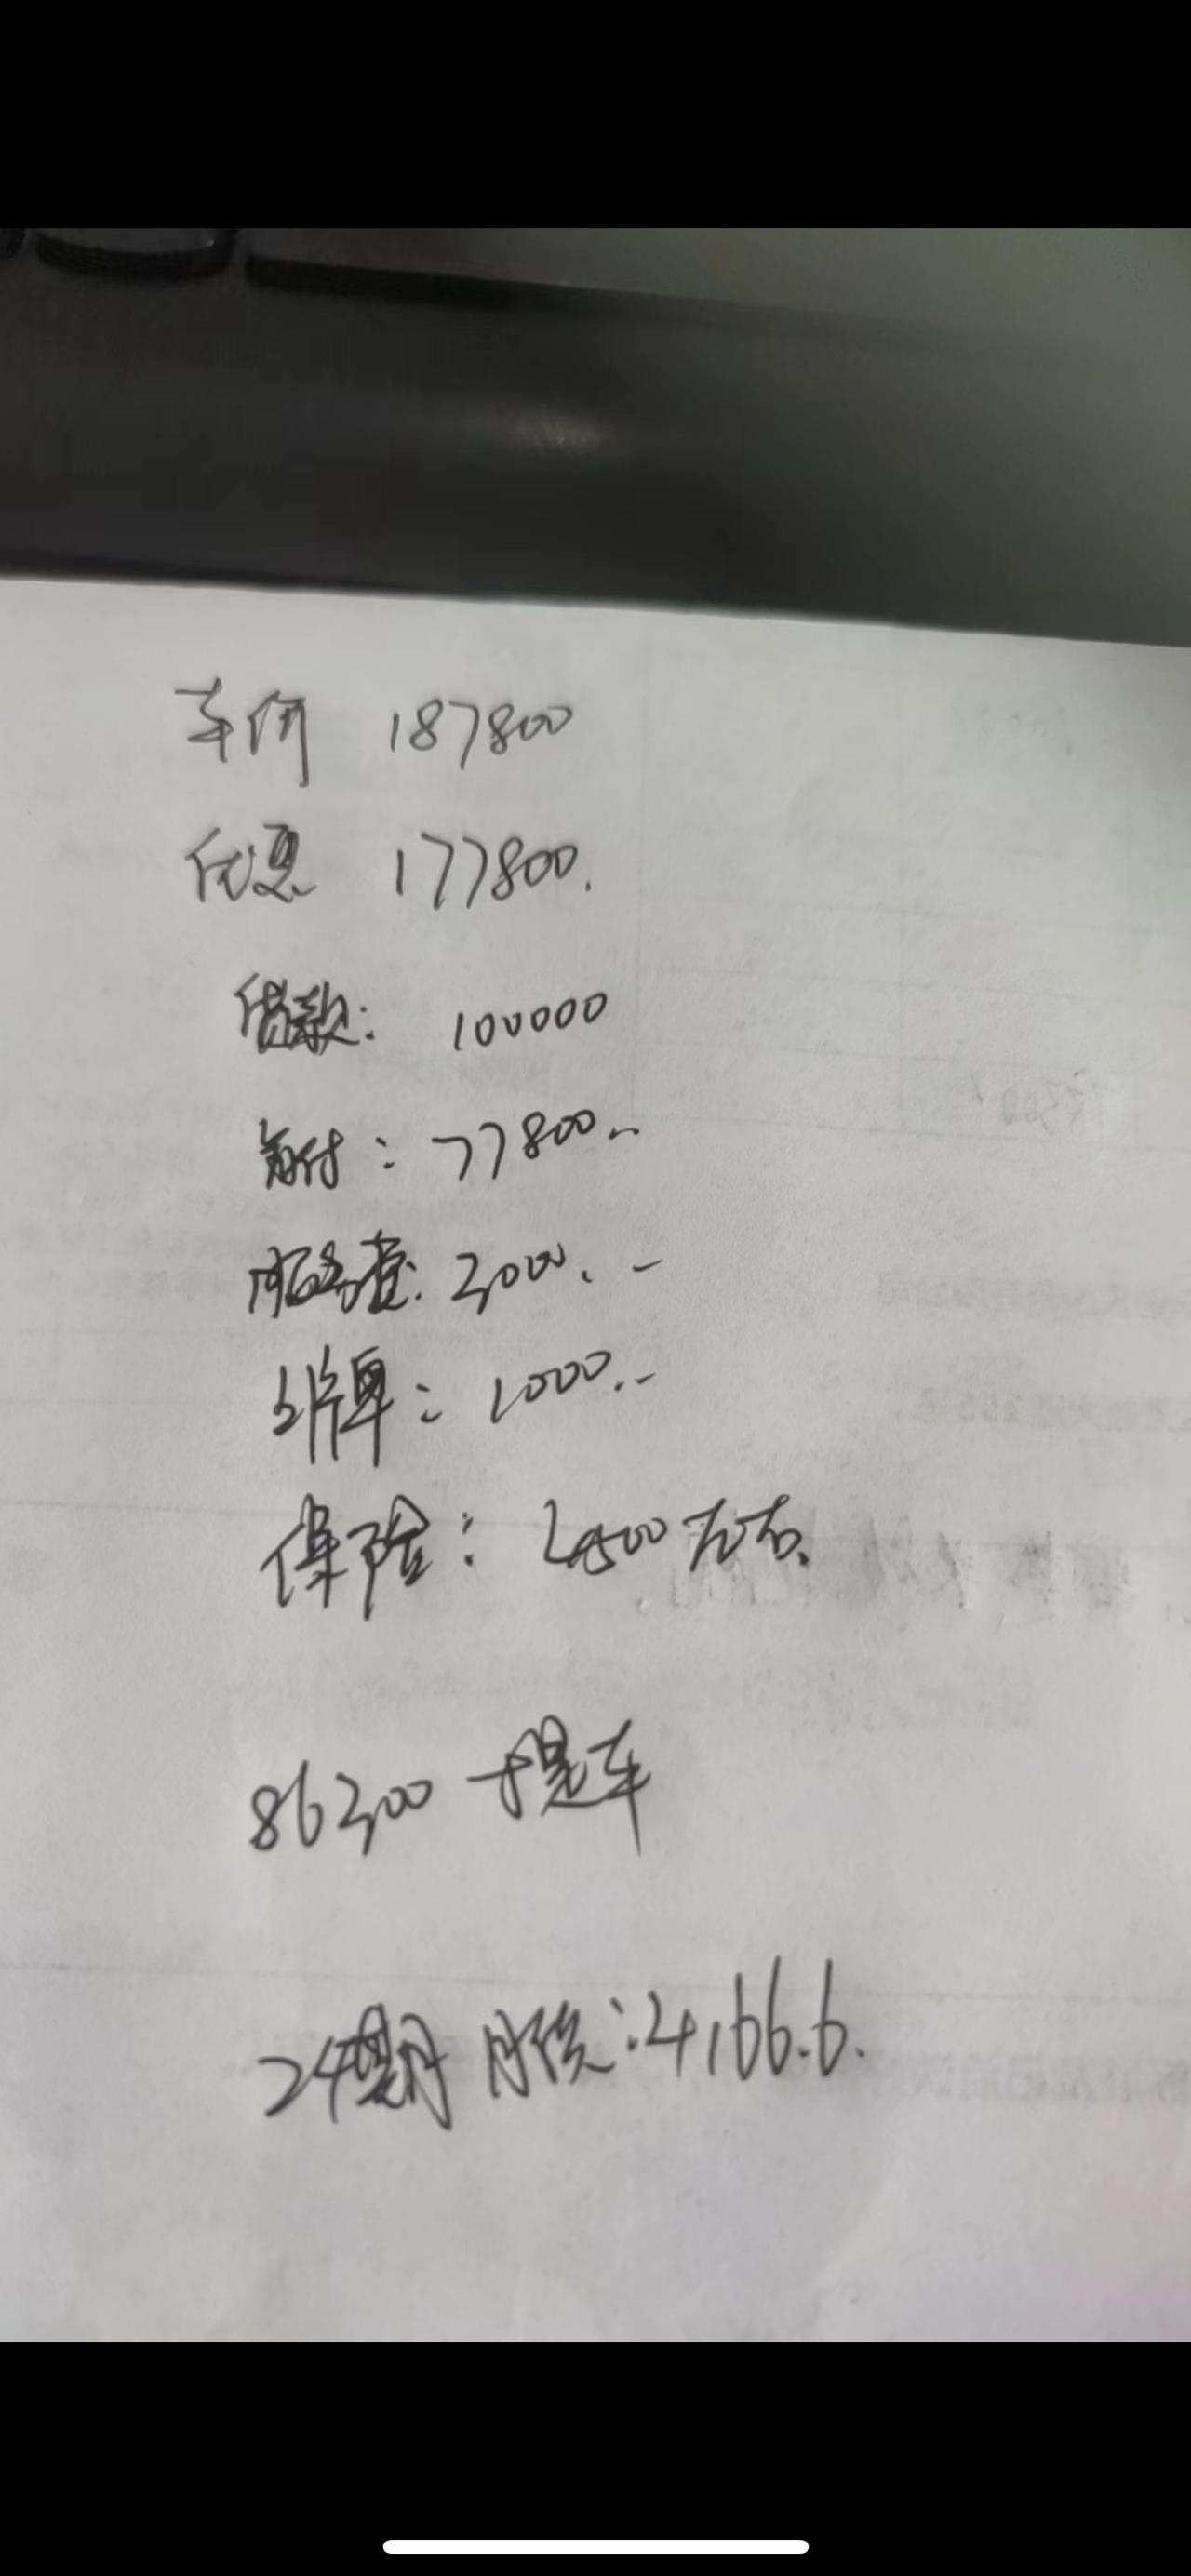 车价 187800
优惠 177800.
贷款: 100000
首付: 77800.-
服务费: 3000.-
上牌: 1000.-
保险: 4500左右.
86300 提车
24期 月供: 4166.6.